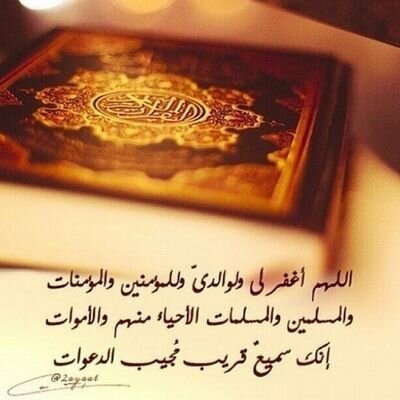 اللهم أغفر لي ولوالديّ وللمؤمنين والمؤمنات
والمسلمين والمسلمات الأحياء منهم والأموات
إنك سميعٌ قريب مُجيب الدعوات
@2ayaat